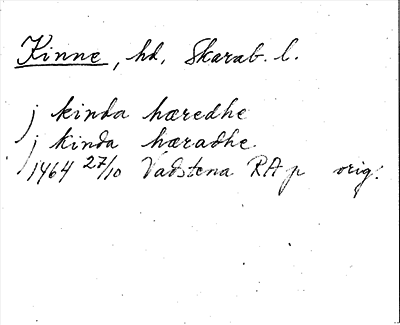 Kinne, hd, Skarab. l.
j kinda hæredhe
j kinda hæradhe
1464 27/10 Vadstena RA p orig.